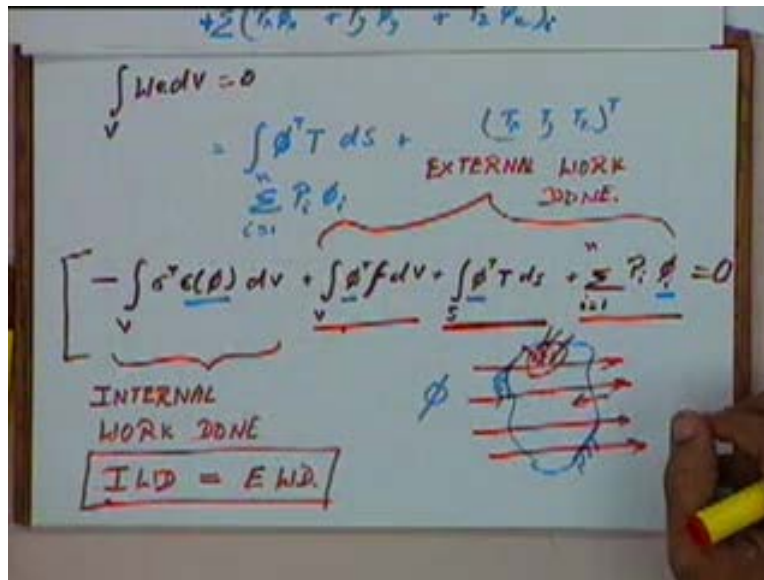 +Σ(Tₓφₓ + Tyφy + T₂φ₂)ᵢ
∫ᵥ dv = 0
= ∫ φᵀT ds + (Tₓ Ty T₂)ᵀ
Σⁿᵢ₌₁ Pᵢ φᵢ
EXTERNAL WORK
DONE.
− ∫ᵥ σᵀ ϵ(φ) dv + ∫ᵥ φᵀf dv + ∫ₛ φᵀT ds + Σⁿᵢ₌₁ Pᵢ φᵢ = 0
φ
INTERNAL
WORK DONE
IWD = EWD.